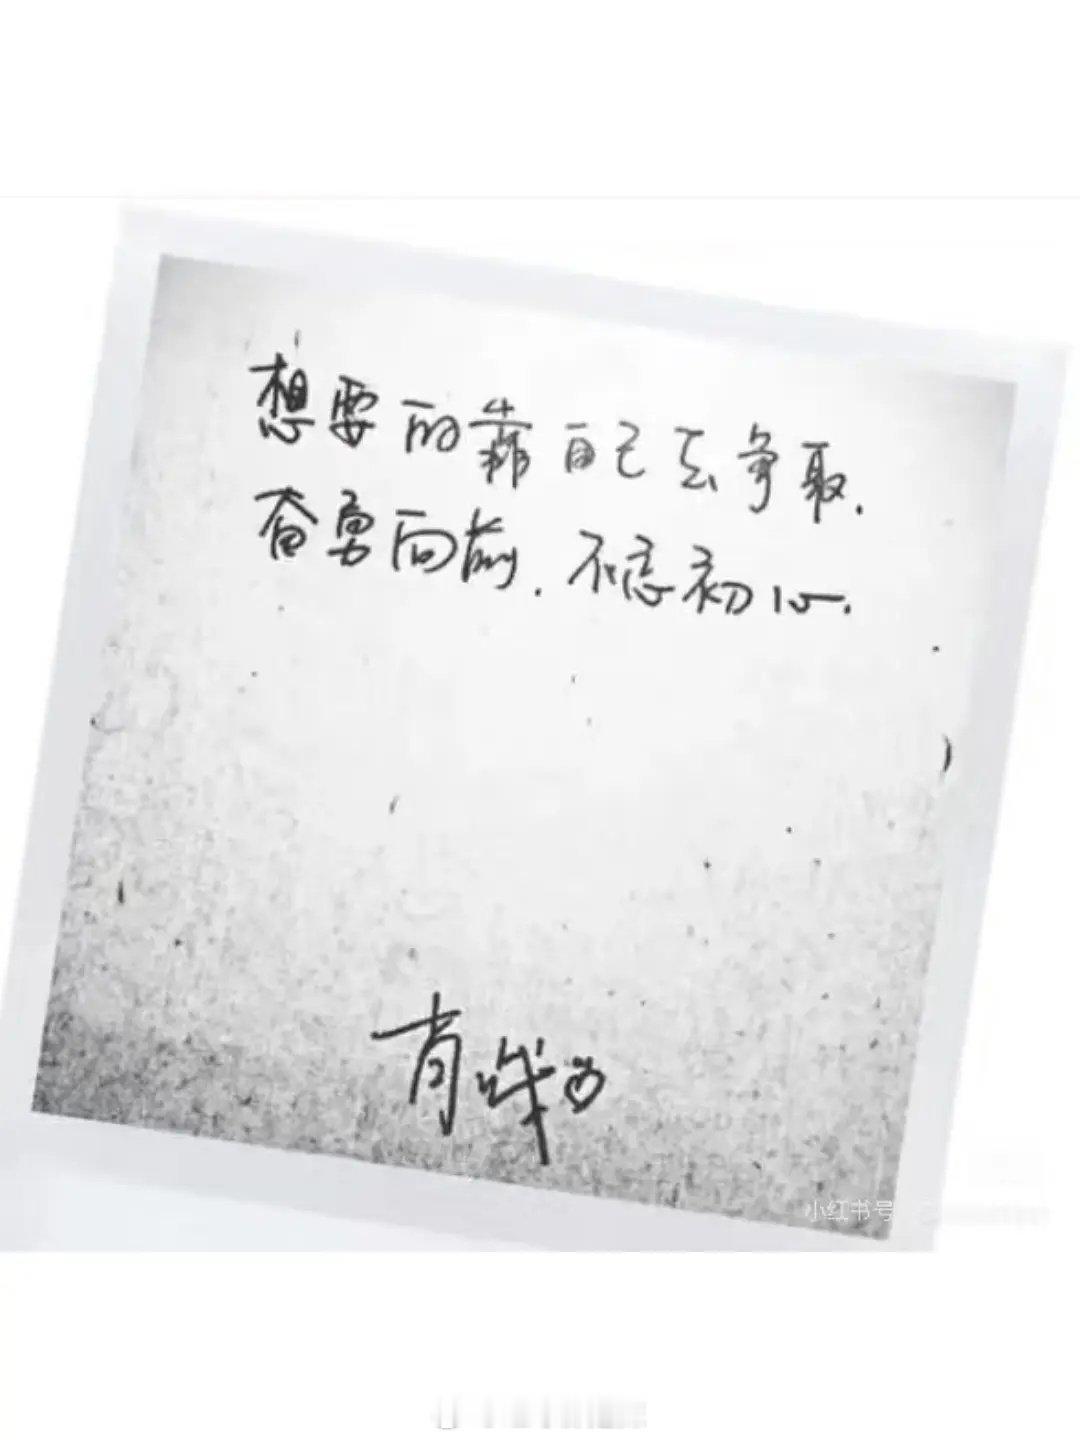 想要的靠自己去争取.
奋勇向前.不忘初心.
小红书号